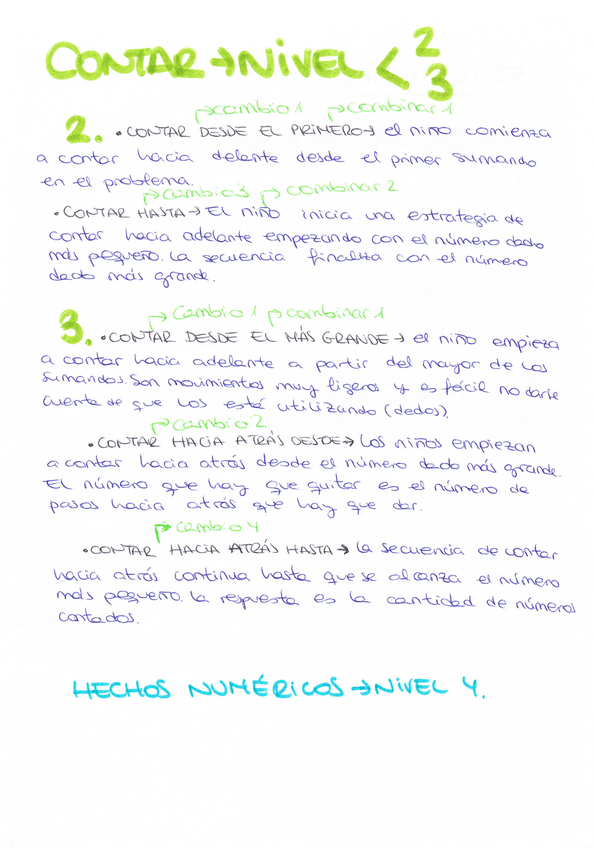 CONTAR → NIVEL < 2
3
→ cambio 1 → combinar 1
2. • CONTAR DESDE EL PRIMERO → el niño comienza
a contar hacia delante desde el primer sumando
en el problema.
→ cambio 3 → combinar 2
• CONTAR HASTA → EL niño inicia una estrategia de
contar hacia adelante empezando con el número dado
más pequeño. La secuencia finaliza con el número
dado más grande.
→ Cambio 1 → combinar 1
3. • CONTAR DESDE EL MÁS GRANDE → el niño empieza
a contar hacia adelante a partir del mayor de los
sumandos. Son movimientos muy ligeros y es fácil no darse
cuenta de que los está utilizando (dedos).
→ cambio 2
• CONTAR HACIA ATRÁS DESDE → Los niños empiezan
a contar hacia atrás desde el número dado más grande.
EL número que hay que quitar es el número de
pasos hacia atrás que hay que dar.
→ cambio 4
• CONTAR HACIA ATRÁS HASTA → la secuencia de contar
hacia atrás continua hasta que se alcanza el número
más pequeño. La respuesta es la cantidad de números
contados.
HECHOS NUMÉRICOS → NIVEL 4.